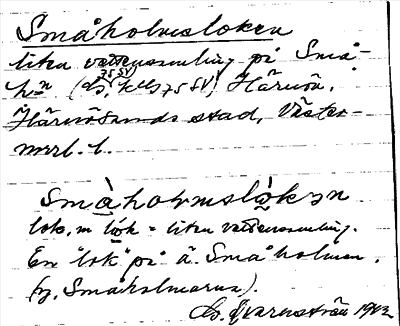 Småholmsloken
liten vattensamling på Små-
hn (Ls. 75 SV) Härnön,
Härnösands stad, Väster-
norrl. l.
småhoḷmslòkən
lok, m lok = liten vattensamling.
En "lok" på ä. Småholmen.
(ej. Småholmarna).
Qvarnström 1942